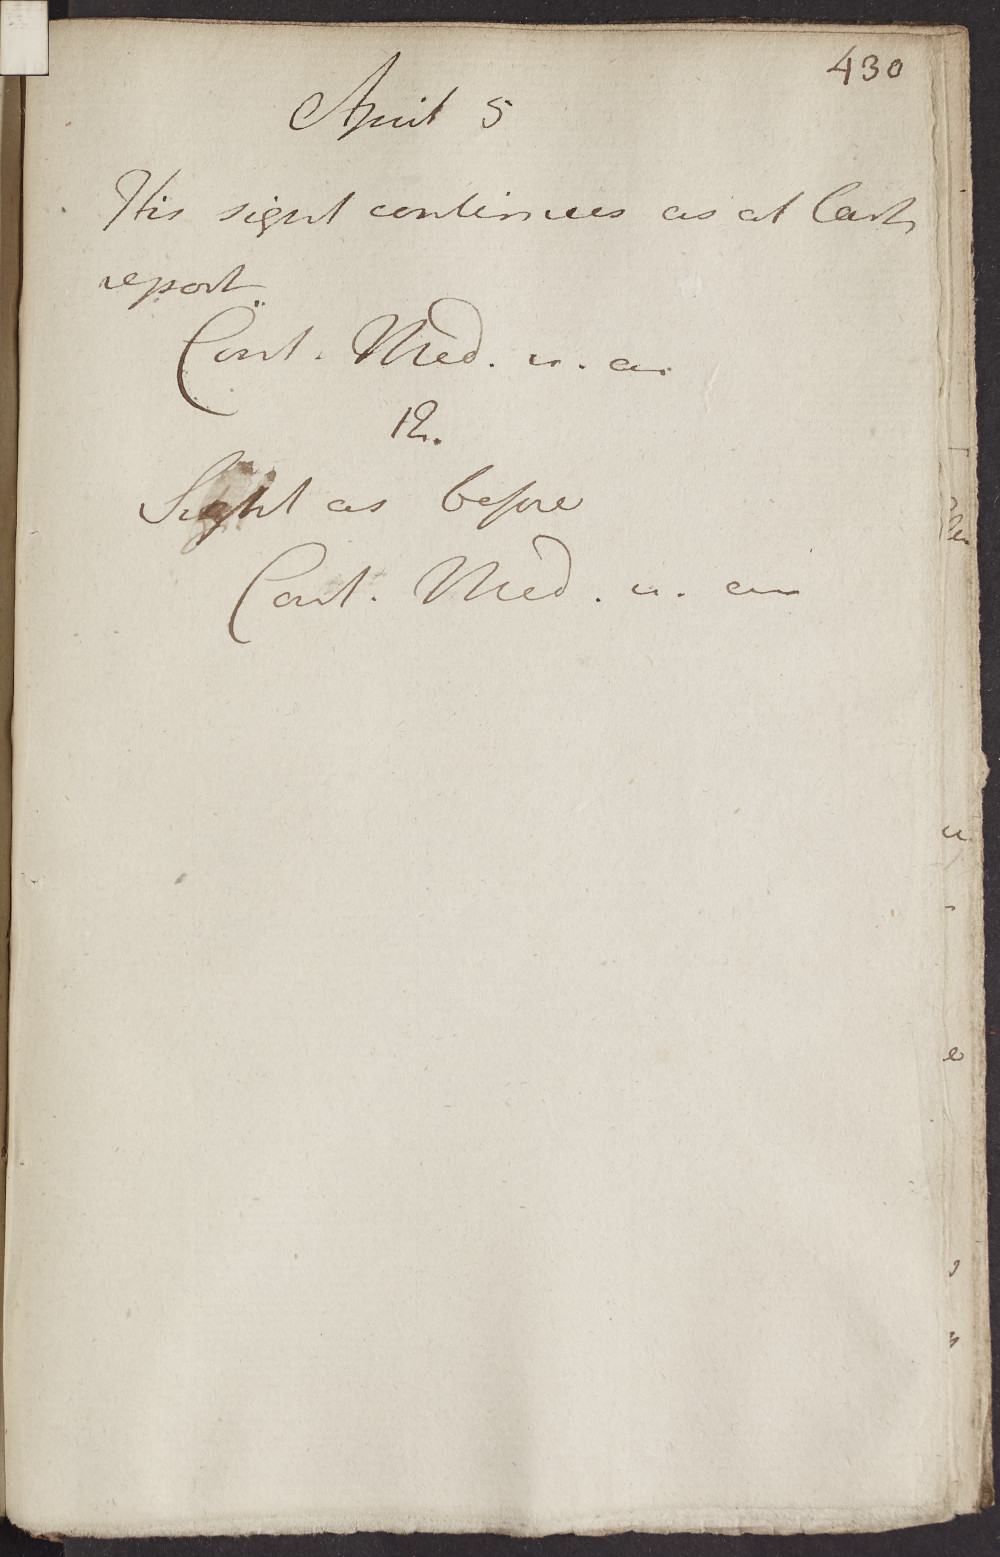 430
April 5
His sight continues as at last
report.
Cont. Med. u. a.
12.
Sight as before
Cont. Med. u. a